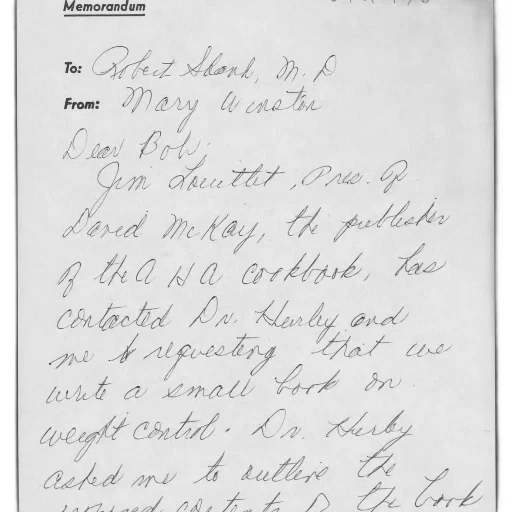 Memorandum
To: Robert Shank, M. D
From: Mary Winston
Dear Bob:
Jim Louttlet, Pres. of
David McKay, the publisher
of the A H A cookbook, has
contacted Dr. Hurley and
me requesting that we
write a small book on
weight control. Dr. Hurley
asked me to outline the
contents of the book